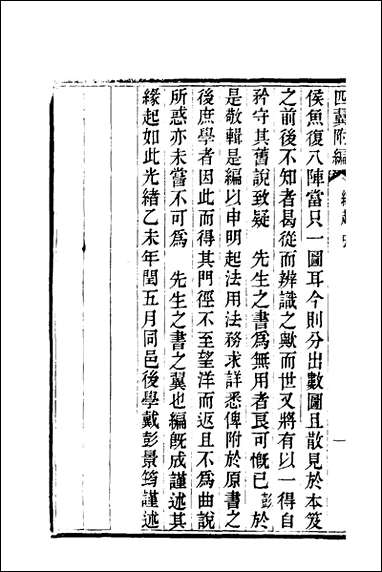 四翼附編 緣起
侯魚復八陣當只一圖耳今則分出數圖且散見於本笈
之前後不知者曷從而辨識之歟而世又將有以一得自
矜守其舊說致疑 先生之書為無用者良可慨已彭於
是敬輯是編以申明起法用法務求詳悉俾附於原書之
後庶學者因此而得其門徑不至望洋而返且不為曲說
所惑亦未嘗不可為 先生之書之翼也編既成謹述其
緣起如此光緒乙未年閏五月同邑後學戴彭景筠謹述